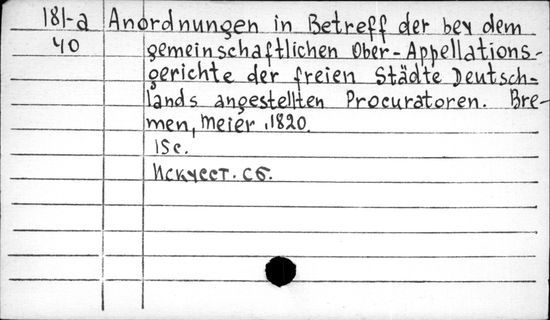 181-a Anordnungen in Betreff der bey dem
40 gemeinschaftlichen Ober-Appellations-
gerichte der freien Städte Deutsch-
lands angestellten Procuratoren. Bre-
men, Meier, 1820.
15 c.
Искусст. сб.